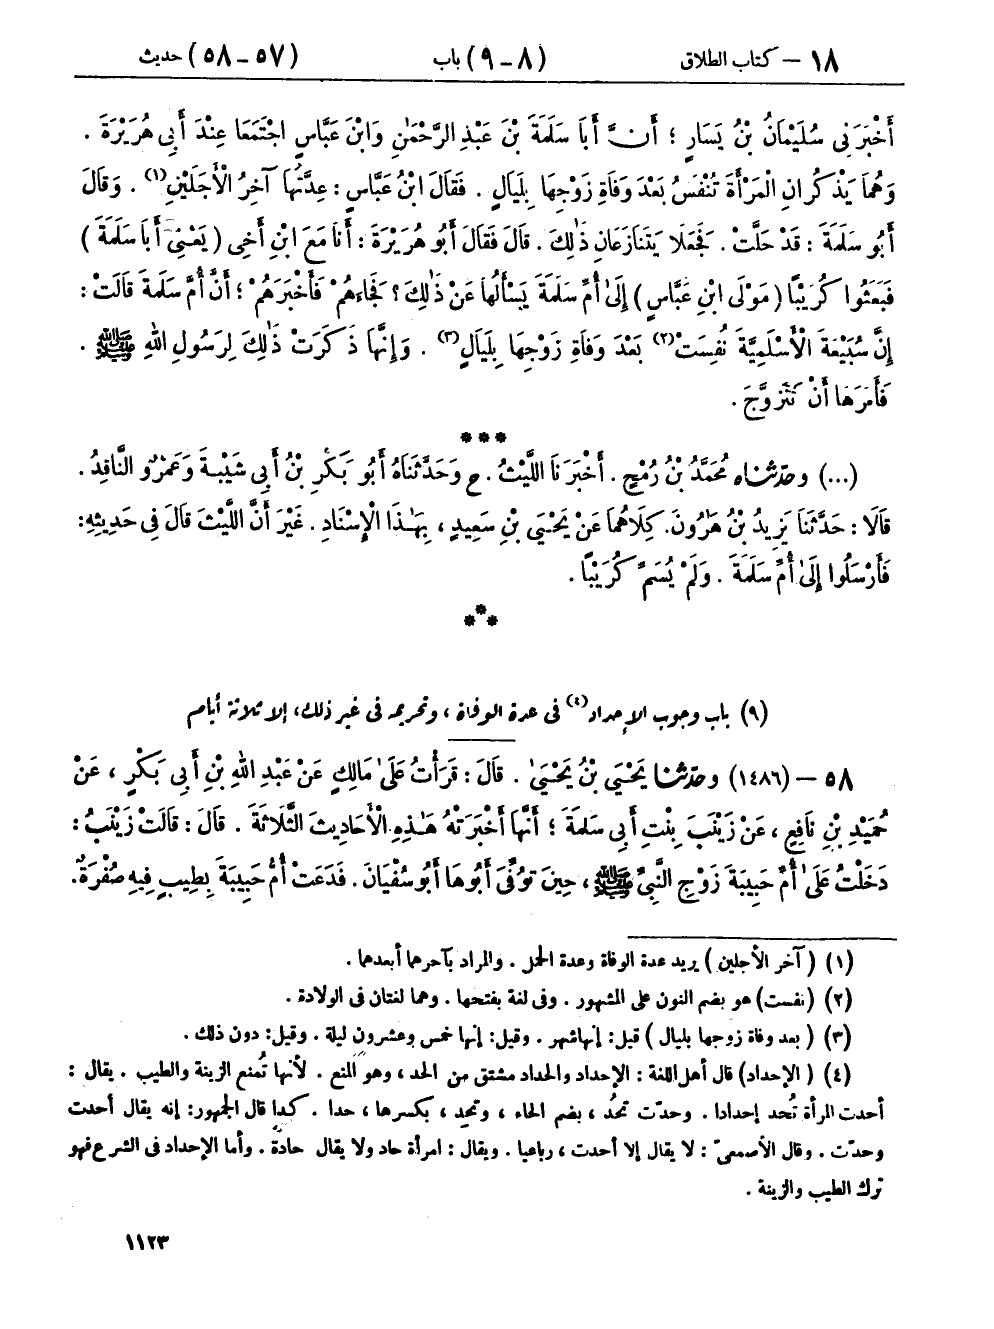 ١٨ – كتاب الطلاق (٨ – ٩) باب (٥٧ – ٥٨) حديث
أَخْبَرَنِي سُلَيْمَانُ بْنُ يَسَارٍ ؛ أَنَّ أَبَا سَلَمَةَ بْنَ عَبْدِ الرَّحْمَٰنِ وَابْنَ عَبَّاسٍ اجْتَمَعَا عِنْدَ أَبِي هُرَيْرَةَ .
وَهُمَا يَذْكُرَانِ الْمَرْأَةَ تُنْفَسُ بَعْدَ وَفَاةِ زَوْجِهَا بِلَيَالٍ . فَقَالَ ابْنُ عَبَّاسٍ : عِدَّتُهَا آخِرُ الْأَجَلَيْنِ(١) . وَقَالَ
أَبُو سَلَمَةَ : قَدْ حَلَّتْ . فَجَعَلَا يَتَنَازَعَانِ ذَٰلِكَ . قَالَ فَقَالَ أَبُو هُرَيْرَةَ : أَنَا مَعَ ابْنِ أَخِي ( يَعْنِي أَبَا سَلَمَةَ )
فَبَعَثُوا كُرَيْبًا ( مَوْلَى ابْنِ عَبَّاسٍ ) إِلَىٰ أُمِّ سَلَمَةَ يَسْأَلُهَا عَنْ ذَٰلِكَ ؟ فَجَاءَهُمْ فَأَخْبَرَهُمْ ؛ أَنَّ أُمَّ سَلَمَةَ قَالَتْ :
إِنَّ سُبَيْعَةَ الْأَسْلَمِيَّةَ نُفِسَتْ(٢) بَعْدَ وَفَاةِ زَوْجِهَا بِلَيَالٍ(٣) . وَإِنَّهَا ذَكَرَتْ ذَٰلِكَ لِرَسُولِ اللهِ ﷺ .
فَأَمَرَهَا أَنْ تَتَزَوَّجَ .
***
(...) وحدّثناه مُحَمَّدُ بْنُ رُمْحٍ . أَخْبَرَنَا اللَّيْثُ . ح وَحَدَّثَنَاهُ أَبُو بَكْرِ بْنُ أَبِي شَيْبَةَ وَعَمْرٌو النَّاقِدُ .
قَالَا : حَدَّثَنَا يَزِيدُ بْنُ هَٰرُونَ. كِلَاهُمَا عَنْ يَحْيَى بْنِ سَعِيدٍ ، بِهَٰذَا الْإِسْنَادِ . غَيْرَ أَنَّ اللَّيْثَ قَالَ فِي حَدِيثِهِ:
فَأَرْسَلُوا إِلَىٰ أُمِّ سَلَمَةَ . وَلَمْ يُسَمِّ كُرَيْبًا .
***
(٩) باب وجوب الإحداد(٤) فى عدة الوفاة ، وتحريمه فى غير ذلك، إلا ثلاثة أيام
٥٨ – (١٤٨٦) وحدّثنا يَحْيَى بْنُ يَحْيَىٰ . قَالَ : قَرَأْتُ عَلَىٰ مَالِكٍ عَنْ عَبْدِ اللهِ بْنِ أَبِي بَكْرٍ ، عَنْ
حُمَيْدِ بْنِ نَافِعٍ ، عَنْ زَيْنَبَ بِنْتِ أَبِي سَلَمَةَ ؛ أَنَّهَا أَخْبَرَتْهُ هَٰذِهِ الْأَحَادِيثَ الثَّلَاثَةَ . قَالَ : قَالَتْ زَيْنَبُ :
دَخَلْتُ عَلَىٰ أُمِّ حَبِيبَةَ زَوْجِ النَّبِيِّ ﷺ ، حِينَ تُوُفِّيَ أَبُوهَا أَبُو سُفْيَانَ . فَدَعَتْ أُمُّ حَبِيبَةَ بِطِيبٍ فِيهِ صُفْرَةٌ.
(١) ( آخر الأجلين ) يريد عدة الوفاة وعدة الحمل . والمراد بآخرهما أبعدهما .
(٢) (نفست) هو بضم النون على المشهور . وفى لغة بفتحها . وهما لغتان فى الولادة .
(٣) ( بعد وفاة زوجها بليال ) قيل: إنها شهر . وقيل: إنها خمس وعشرون ليلة . وقيل: دون ذلك .
(٤) ( الإحداد) قال أهل اللغة : الإحداد والحداد مشتق من الحد ، وهو المنع . لأنها تُمنع الزينة والطيب . يقال :
أحدت المرأة تُحد إحدادا . وحدّت تَحُد ، بضم الحاء ، وتحِد ، بكسرها ، حدا . كذا قال الجمهور: إنه يقال أحدت
وحدّت . وقال الأصمعىّ : لا يقال إلا أحدت ، رباعيا . ويقال : امرأة حاد ولا يقال حادّة . وأما الإحداد فى الشرع فهو
ترك الطيب والزينة .
١١٢٣